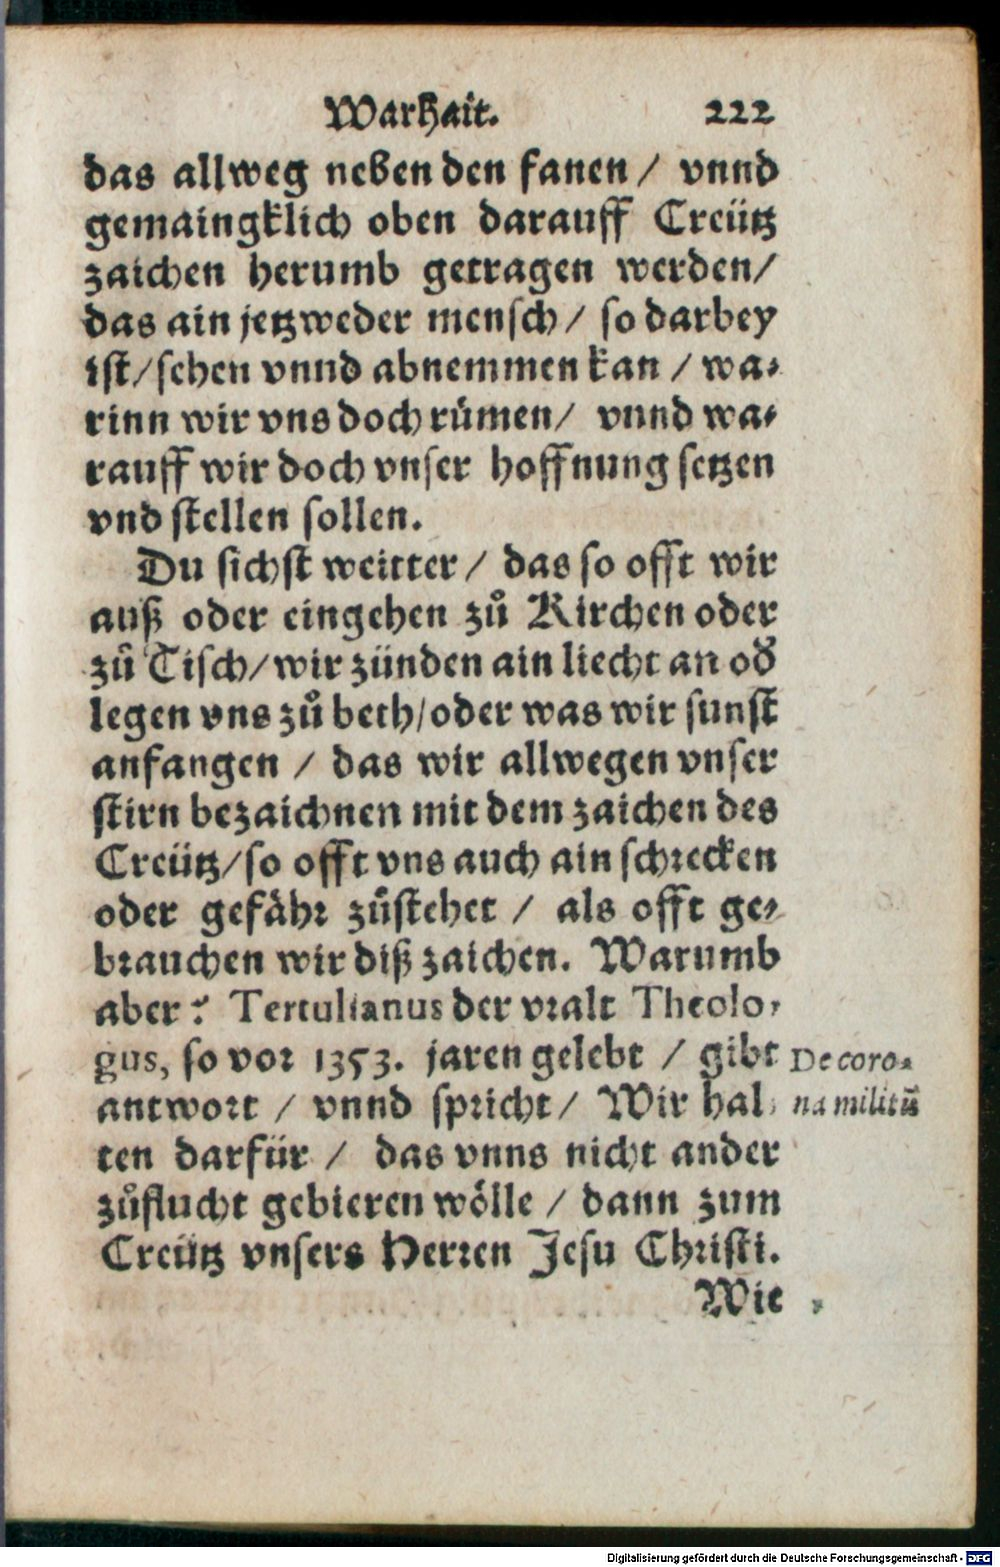 Warhait. 222
das allweg neben den fanen / vnnd
gemaingklich oben darauff Creütz
zaichen herumb getragen werden/
das ain jetzweder mensch / so darbey
ist/sehen vnnd abnemmen kan / wa-
rinn wir vns doch rümen/ vnnd wa-
rauff wir doch vnser hoffnung setzen
vnd stellen sollen.
Du sichst weitter / das so offt wir
auß oder eingehen zů Kirchen oder
zů Tisch/wir zünden ain liecht an od̄
legen vns zů beth/oder was wir sunst
anfangen / das wir allwegen vnser
stirn bezaichnen mit dem zaichen des
Creütz/so offt vns auch ain schrecken
oder gefähr zůstehet / als offt ge-
brauchen wir diß zaichen. Warumb
aber? Tertulianus der vralt Theolo-
gus, so vor 1353. jaren gelebt / gibt
De coro-
antwort / vnnd spricht/ Wir hal-
na militũ
ten darfür / das vnns nicht ander
zůflucht gebieren wölle / dann zum
Creütz vnsers Herren Jesu Christi.
Wie
Digitalisierung gefördert durch die Deutsche Forschungsgemeinschaft - DFG